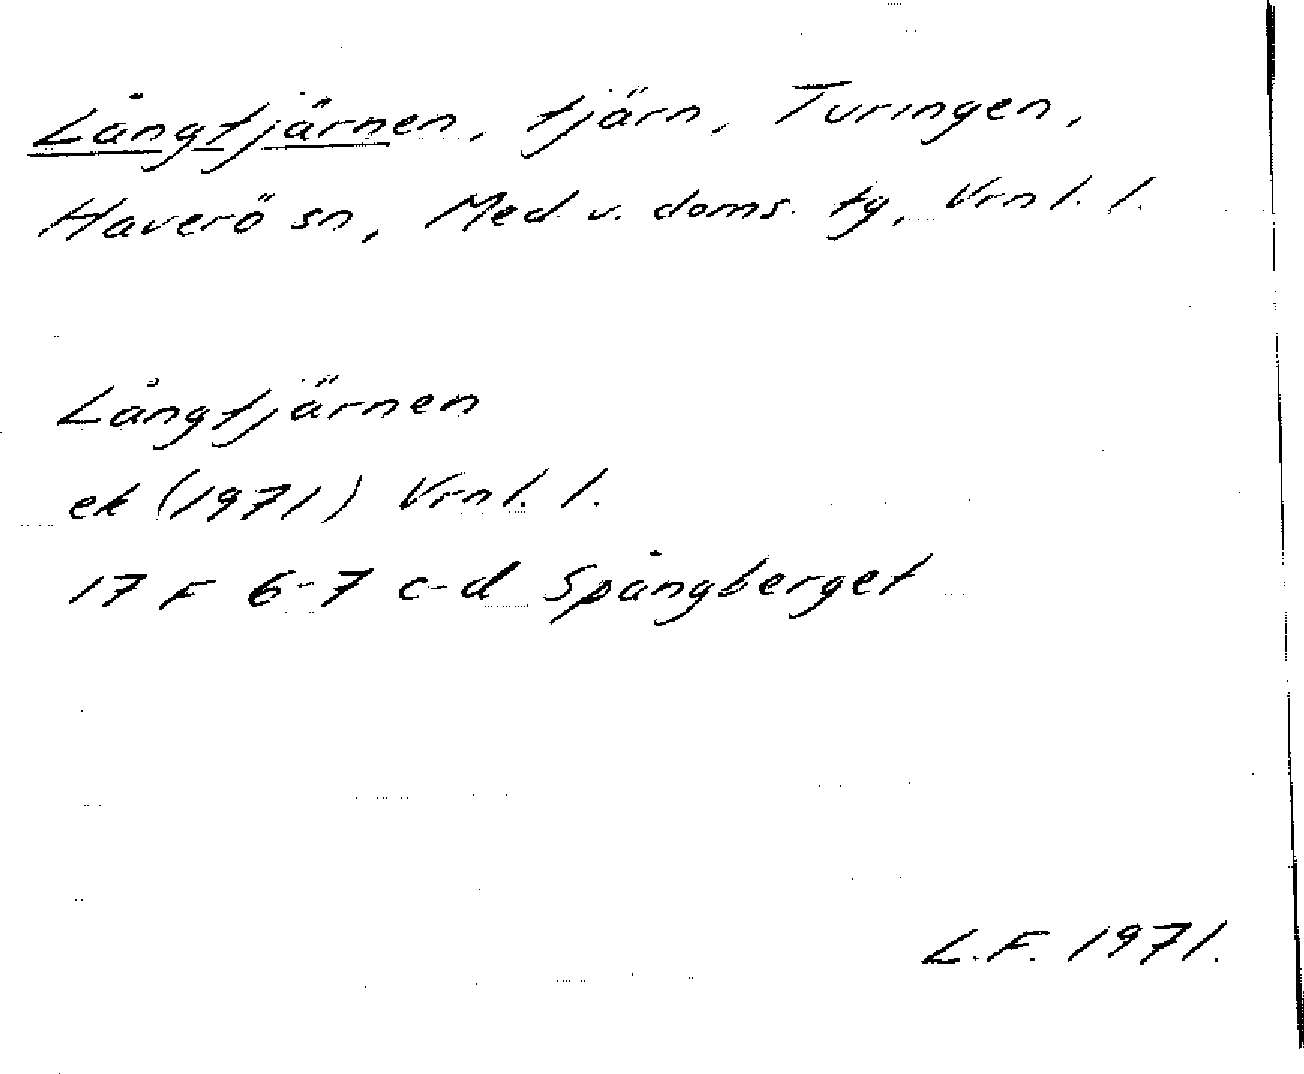 Långtjärnen, tjärn, Turingen,
Haverö sn, Med. v. doms. tg, Vrnl. l.
Långtjärnen
ek (1971) Vrnl. l.
17 F 6-7 c-d Spångberget
L.F. 1971.